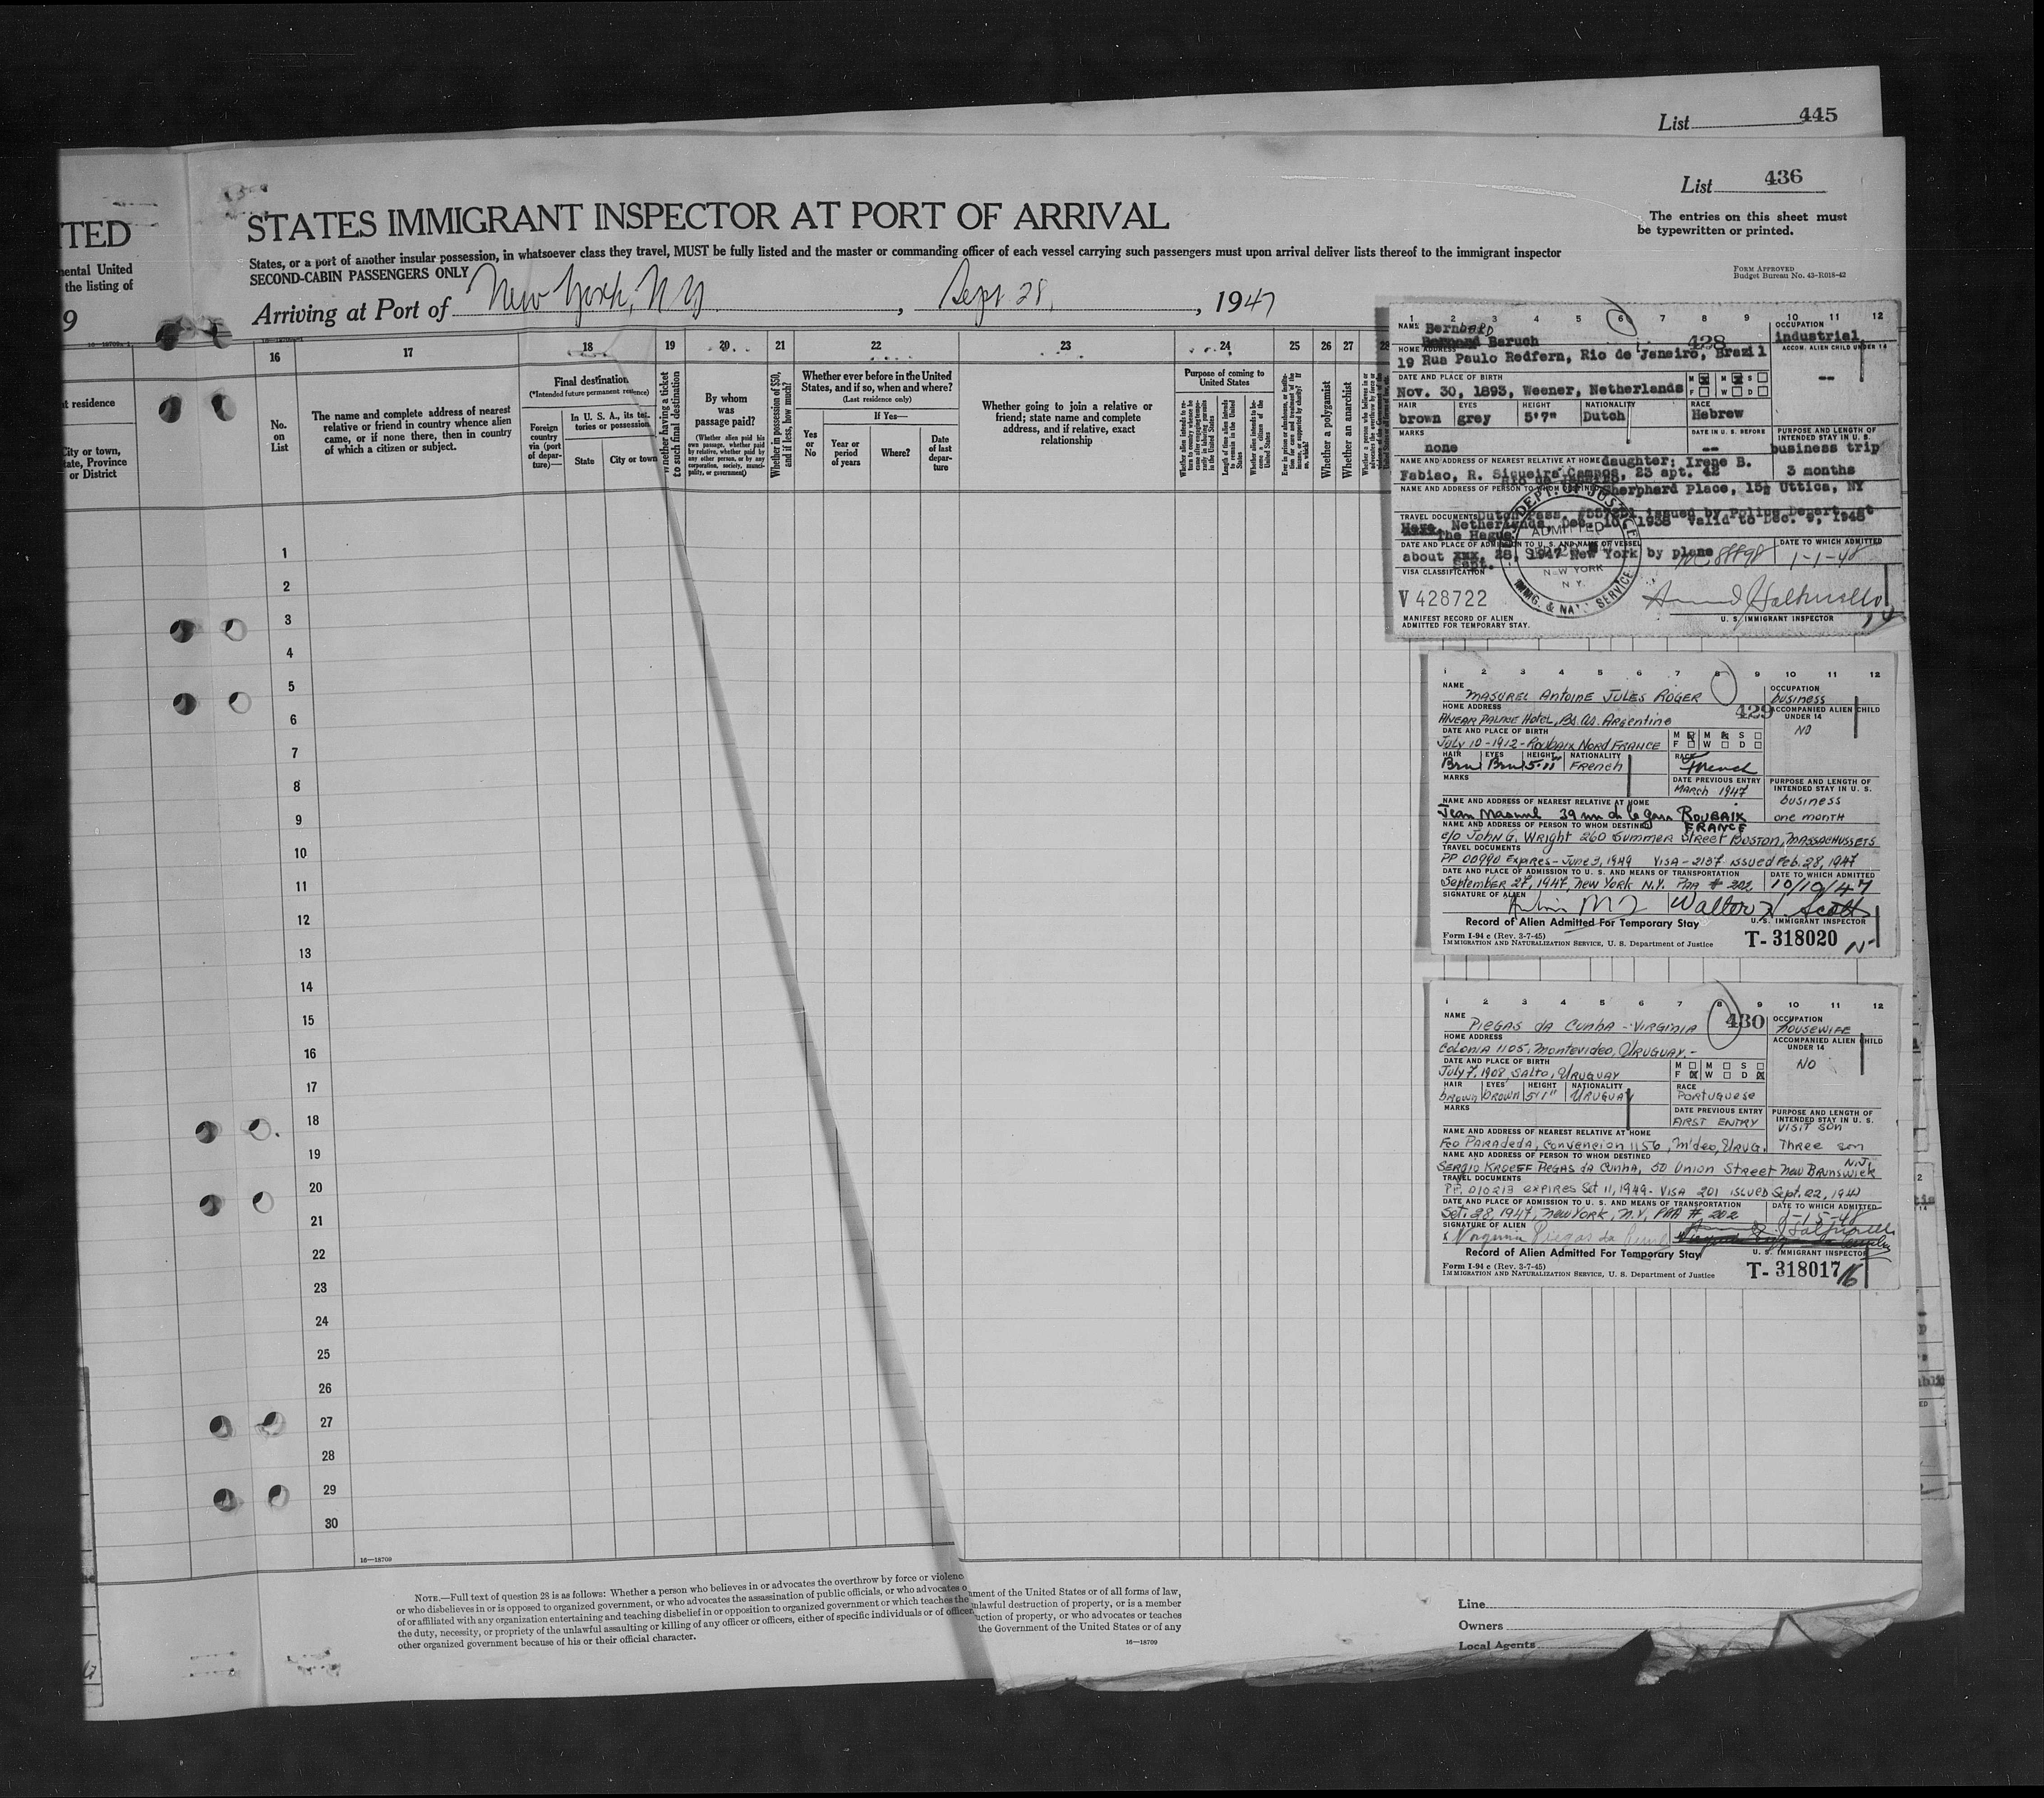 List 445
List 436
The entries on this sheet must
be typewritten or printed.
FORM APPROVED
Budget Bureau No. 43-R018-42
TED
mental United
the listing of
9
STATES IMMIGRANT INSPECTOR AT PORT OF ARRIVAL
States, or a port of another insular possession, in whatsoever class they travel, MUST be fully listed and the master or commanding officer of each vessel carrying such passengers must upon arrival deliver lists thereof to the immigrant inspector
SECOND-CABIN PASSENGERS ONLY
Arriving at Port of New York, N Y, Sept 28, 1947
16 17 18 19 20 21 22 23 24 25 26 27 28
residence
City or town,
State, Province
or District
No.
on
List
The name and complete address of nearest
relative or friend in country whence alien
came, or if none there, then in country
of which a citizen or subject.
Final destination
(*Intended future permanent residence)
Foreign
country
via (port
of depar-
ture)—
In U. S. A., its ter-
ritories or possessions
State
City or town
Whether having a ticket
to such final destination
By whom
was
passage paid?
(Whether alien paid his
own passage, whether paid
by relative, whether paid by
any other person, or by any
corporation, society, munici-
pality, or government)
Whether in possession of $50,
and if less, how much?
Whether ever before in the United
States, and if so, when and where?
(Last residence only)
Yes
or
No
If Yes—
Year or
period
of years
Where?
Date
of last
depar-
ture
Whether going to join a relative or
friend; state name and complete
address, and if relative, exact
relationship
Purpose of coming to
United States
Length of time alien intends
to remain in the United
States
Whether a polygamist
Whether an anarchist
1
2
3
4
5
6
7
8
9
10
11
12
13
14
15
16
17
18
19
20
21
22
23
24
25
26
27
28
29
30
16—18709
1 2 3 4 5 6 7 8 9 10 11 12
NAME Bernhard
Bernand Baruch
428
OCCUPATION
industrial
HOME ADDRESS
19 Rua Paulo Redfern, Rio de Janeiro, Brazil
ACCOM. ALIEN CHILD UNDER 14
--
DATE AND PLACE OF BIRTH
Nov. 30, 1893, Weener, Netherlands
M M S
F W D
HAIR EYES HEIGHT NATIONALITY RACE
brown grey 5'7" Dutch Hebrew
MARKS
none
DATE IN U.S. BEFORE
--
PURPOSE AND LENGTH OF
INTENDED STAY IN U. S.
business trip
3 months
NAME AND ADDRESS OF NEAREST RELATIVE AT HOME daughter: Irene B.
Fabiao, R. Siqueira Campos, 23 apt. 42
NAME AND ADDRESS OF PERSON TO WHOM DESTINED
Sherphard Place, Uttica, NY
TRAVEL DOCUMENTS Dutch Pass. issued by Police Depart. at
The Hague, Netherlands, Dec. 10, 1938 valid to Dec. 1948
DATE AND PLACE OF ADMISSION TO U. S. AND NAME OF VESSEL
about Sept. 28, 1947 New York by plane
DATE TO WHICH ADMITTED
1-1-48
DEPT. OF JUSTICE
ADMITTED
NEW YORK
N. Y.
IMMG. & NAT. SERVICE
VISA CLASSIFICATION
V 428722
U. S. IMMIGRANT INSPECTOR
MANIFEST RECORD OF ALIEN
ADMITTED FOR TEMPORARY STAY.
1 2 3 4 5 6 7 8 9 10 11 12
NAME
MASUREL Antoine JULES ROGER
OCCUPATION
business
HOME ADDRESS
429
Alvear Palace Hotel, Bs. As. Argentine
ACCOMPANIED ALIEN CHILD
UNDER 14
NO
DATE AND PLACE OF BIRTH
July 10-1912-Roubaix Nord FRANCE
M M S
F W D
HAIR EYES HEIGHT NATIONALITY RACE
Brn Brn 5-11 French French
MARKS
DATE PREVIOUS ENTRY
March 1947
PURPOSE AND LENGTH OF
INTENDED STAY IN U. S.
business
one month
NAME AND ADDRESS OF NEAREST RELATIVE AT HOME
Jean Masurel 39 rue de la gare ROUBAIX
FRANCE
NAME AND ADDRESS OF PERSON TO WHOM DESTINED
c/o John G. Wright 260 Summer Street Boston, Massachussets
TRAVEL DOCUMENTS
PP 00990 Expires-June 3, 1949 VISA-2137 issued Feb. 28, 1947
DATE AND PLACE OF ADMISSION TO U. S. AND MEANS OF TRANSPORTATION
September 27, 1947, New York N.Y. PAA # 202
DATE TO WHICH ADMITTED
10/19/47
SIGNATURE OF ALIEN
Walter H. Scott
U. S. IMMIGRANT INSPECTOR
Record of Alien Admitted For Temporary Stay
Form I-94 c (Rev. 3-7-45)
IMMIGRATION AND NATURALIZATION SERVICE, U. S. Department of Justice
T- 318020
1 2 3 4 5 6 7 8 9 10 11 12
NAME
PIEGAS da Cunha - VIRGINIA
430
OCCUPATION
HOUSEWIFE
HOME ADDRESS
COLONIA 1105, Montevideo, URUGUAY.-
ACCOMPANIED ALIEN CHILD
UNDER 14
NO
DATE AND PLACE OF BIRTH
July 7, 1908, SALTO, URUGUAY
M M S
F W D
HAIR EYES HEIGHT NATIONALITY RACE
brown brown 5'1" URUGUAY PORTUGUESE
MARKS
DATE PREVIOUS ENTRY
FIRST ENTRY
PURPOSE AND LENGTH OF
INTENDED STAY IN U. S.
VISIT SON
NAME AND ADDRESS OF NEAREST RELATIVE AT HOME
Fco PARADEDA, Convencion 1156, M'deo, URUG.
Three
NAME AND ADDRESS OF PERSON TO WHOM DESTINED
SERGIO KROEFF PIEGAS da CUNHA, 50 Union Street New Brunswick N.J.
TRAVEL DOCUMENTS
PP. 010213 EXPIRES Set 11, 1949- VISA 201 ISSUED Sept. 22, 194
DATE AND PLACE OF ADMISSION TO U. S. AND MEANS OF TRANSPORTATION
Set. 28, 1947, New YORK, N.Y, PAA # 202
DATE TO WHICH ADMITTED
1-15-48
SIGNATURE OF ALIEN
x Virginia Piegas da Cunha
U. S. IMMIGRANT INSPECTOR
Record of Alien Admitted For Temporary Stay
Form I-94 c (Rev. 3-7-45)
IMMIGRATION AND NATURALIZATION SERVICE, U. S. Department of Justice
T- 318017
NOTE.—Full text of question 28 is as follows: Whether a person who believes in or advocates the overthrow by force or violenc
or who disbelieves in or is opposed to organized government, or who advocates the assassination of public officials, or who advocates o
of or affiliated with any organization entertaining and teaching disbelief in or opposition to organized government or which teaches the
the duty, necessity, or propriety of the unlawful assaulting or killing of any officer or officers, either of specific individuals or of officer
other organized government because of his or their official character.
nment of the United States or of all forms of law,
nlawful destruction of property, or is a member
uction of property, or who advocates or teaches
the Government of the United States or of any
16—18709
Line
Owners
Local Agents